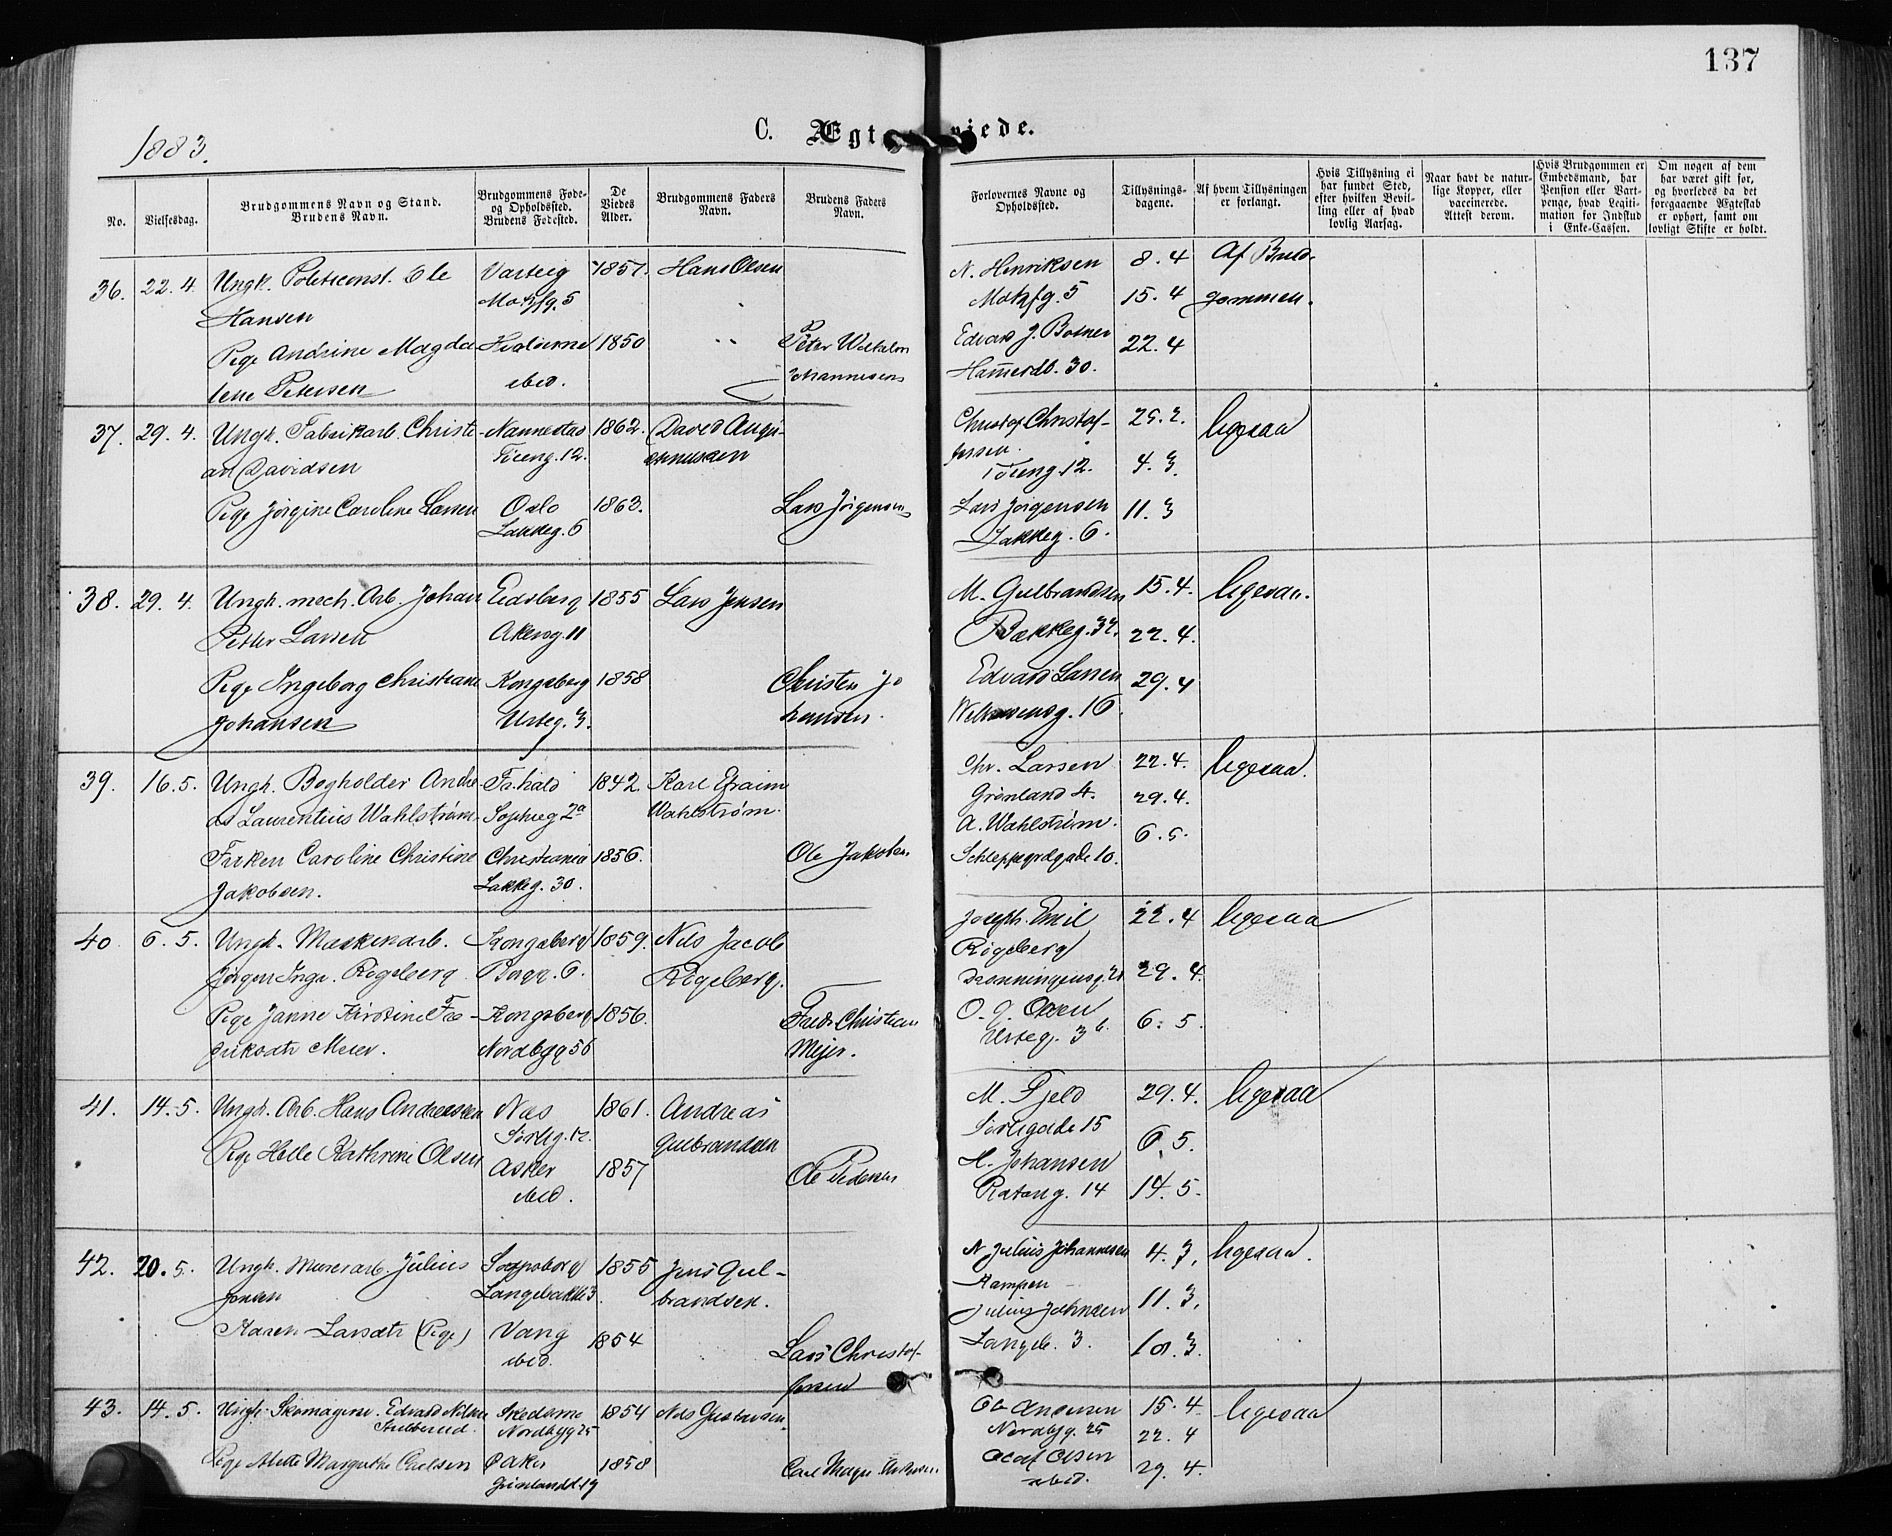 137
1883.
C. Ægteviede.
No.
Vielsesdag.
Brudgommens Navn og Stand.
Brudens Navn.
Brudgommens Føde-
og Opholdssted.
Brudens Fødested.
De
Viedes
Alder.
Brudgommens Faders
Navn.
Brudens Faders
Navn.
Forlovernes Navne og
Opholdssted.
Tillysnings-
dagene.
Af hvem Tillysningen
er forlangt.
Hvis Tillysning ei
har fundet Sted,
efter hvilken Bevil-
ling eller af hvad
lovlig Aarsag.
Naar havt de natur-
lige Kopper, eller
vaccinerede.
Attest derom.
Hvis Brudgommen er
Embedsmand, har
Pension eller Vart-
penge, hvad Legiti-
mation for Indskud
i Enke-Cassen.
Om nogen af dem
har været gift før,
og hvorledes da det
foregaaende Ægteskab
er ophørt, samt om
lovligt Skifte er holdt.
36. 22. 4. Ungk. Politiconst. Ole
Hansen
Varteig
5
1857. Hans Olsen
Pige Andrine Magda
lene Petersen
ibid.
1850
Peter
Johannesens
N. Henriksen
5
Edvard J.
30.
8. 4
15. 4
22. 4
Af Brud-
gommen.
37. 29. 4. Ungk. Fabrikarb. Christi
an Davidsen
Nannestad
Tøieng. 12.
1862. David
Pige Jørgine Caroline Larsen
Oslo
Lakkeg. 6
1863.
Lars Jørgensen
Christof Christof-
fersen
Tøieng. 12.
Lars Jørgensen
Lakkeg. 6.
25. 2.
4. 3.
11. 3
ligesaa
38. 29. 4. Ungk. mech. Arb. Johan
Petter Larsen
Eidsberg
Akersg. 11
1855 Lars Jensen
Pige Ingeborg Christiane
Johansen
Kongsberg
Urteg. 3.
1858
Christen Jo
hansen.
M. Gulbrandsen
Bækkeg. 32.
Edvard Larsen
16.
15. 4.
22. 4.
29. 4
ligesaa.
39. 16. 5. Ungk. Bogholder Andre
as Laurentius Wahlstrøm
Fr.hald
Sophieg 2a
1842. Karl Efraim
Wahlstrøm.
Frøken Caroline Christine
Jakobsen.
Christiania
Lakkeg. 30.
1856.
Ole Jakobsen
Chr. Larsen
Grønland 4.
A. Wahlstrøm.
Schleppegrelgade 10.
22. 4.
29. 4.
6. 5.
ligesaa.
40 6. 5. Ungk. Maskinarb.
Jørgen Inge. Rigeberg
Kongsberg
6.
1859. Nils Jacob
Rigeberg.
Pige Janne Kirstine Fre-
Meier.
Kongsberg
Nordbyg 56
1856.
Fredr Christian
Mejer.
Joseph. Emil
Rigeberg
O. J. Olsen
Urteg. 3 b.
22. 4
29. 4.
6. 5.
ligesaa
41. 14. 5. Ungk. Arb. Hans Andreassen
Næs
Sørlig. 12.
1861. Andreas
Gulbrandsen
Pige Helle Kathrine Olsen
Asker
ibid.
1857
Ole Pedersen
M. Fjeld
Sørligade 15
H. Johansen
14
29. 4.
6. 5.
14. 5.
ligesaa
42. 20. 5. Ungk. Murerarb. Julius
Jensen
Sarpsborg
Langebakke 3
1855 Jens Gul-
brandsen.
Karen Larsdtr (Pige)
Vang
ibid.
1854
Lars Christof-
fersen
N. Julius Johannesen
Kampen
Julius Johnsen
Langeb. 3.
4. 3.
11. 3.
18. 3.
ligesaa.
43. 14. 5. Ungk. Skomagersv. Edvard Nilsen
Skedsmo
Nordbyg 25
1854 Nils Gustavsen
Pige Alette Margrethe Carlsen
Ø Aker
Grønlandsl. 19
1858
Carl Magn.
Ole Andersen
Nordbyg. 25
Olaf Olsen
ibid.
15. 4.
22. 4
29. 4.
ligesaa